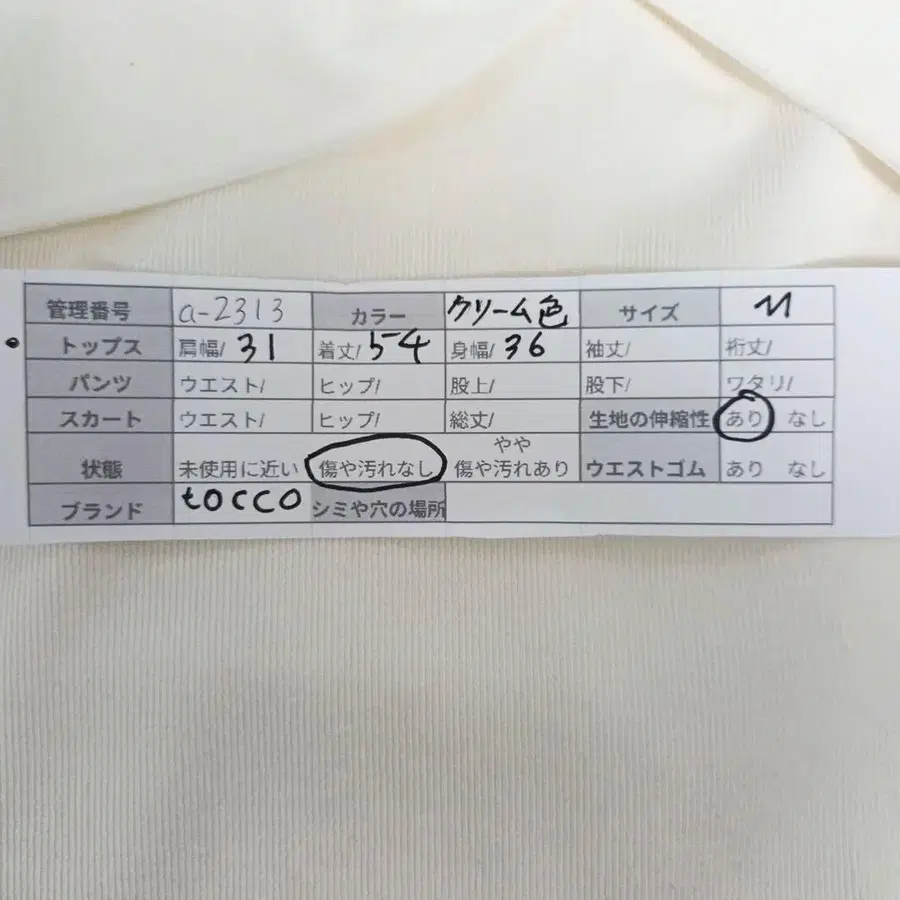 管理番号 a-2313 カラー クリーム色 サイズ M
トップス 肩幅/ 31 着丈/ 54 身幅/ 36 袖丈/ 裄丈/
パンツ ウエスト/ ヒップ/ 股上/ 股下/ ワタリ/
スカート ウエスト/ ヒップ/ 総丈/ 生地の伸縮性 あり なし
状態 未使用に近い 傷や汚れなし やや傷や汚れあり ウエストゴム あり なし
ブランド tocco シミや穴の場所